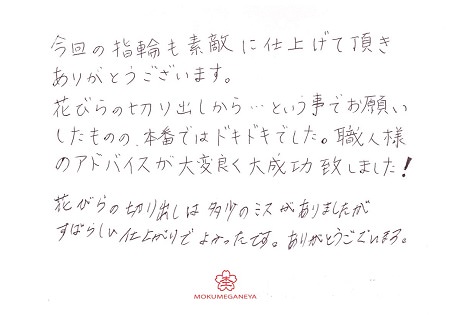 今回の指輪も素敵に仕上げて頂き
ありがとうございます。
花びらの切り出しから…という事でお願い
したものの、本番ではドキドキでした。職人様
のアドバイスが大変良く大成功致しました!
花びらの切り出しは多少のミスがありましたが
すばらしい仕上がりでよかったです。ありがとうございます。
MOKUMEGANEYA